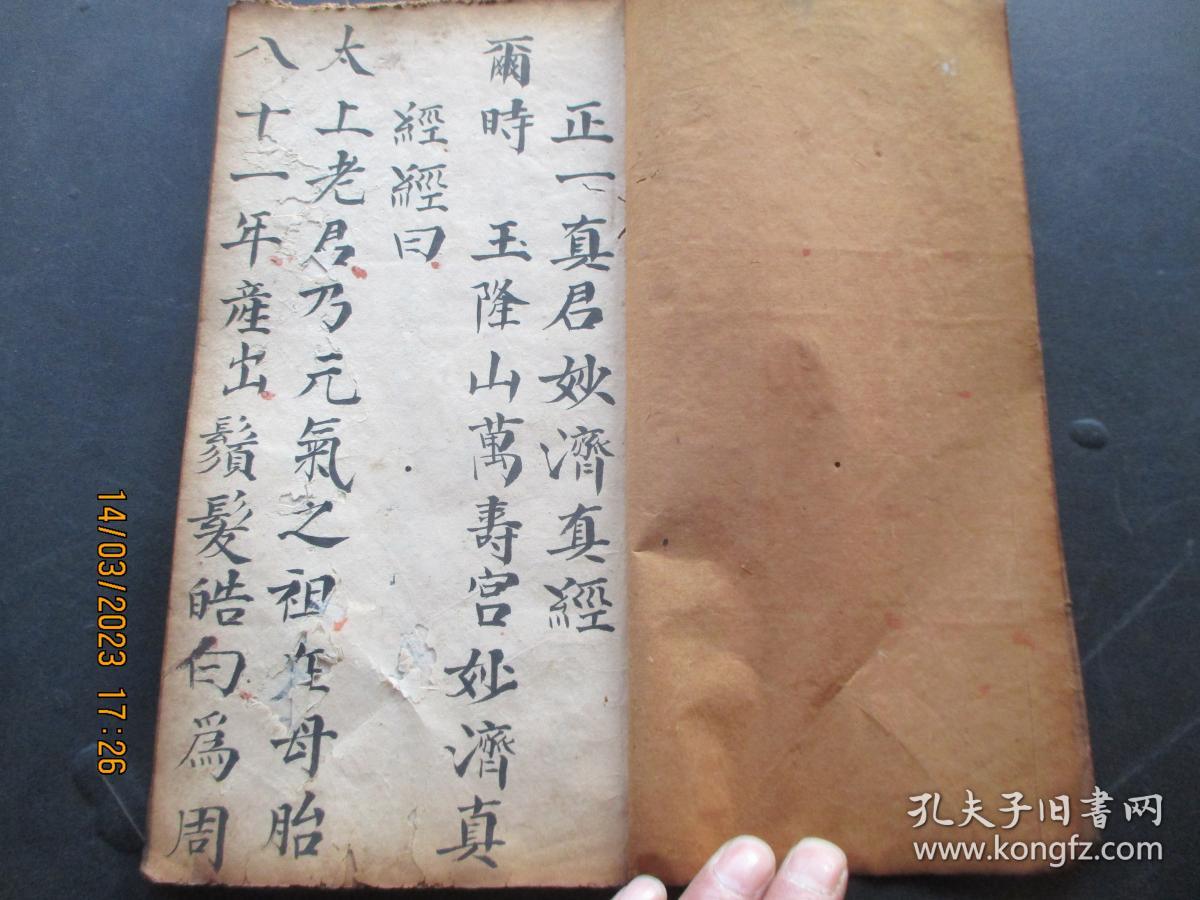 正一真君妙濟真經
爾時　玉隆山萬壽宮妙濟真
經經曰
太上老君乃元氣之祖在母胎
八十一年產出鬚髮皓白為周
14/03/2023 17:26
孔夫子旧書网
www.kongfz.com